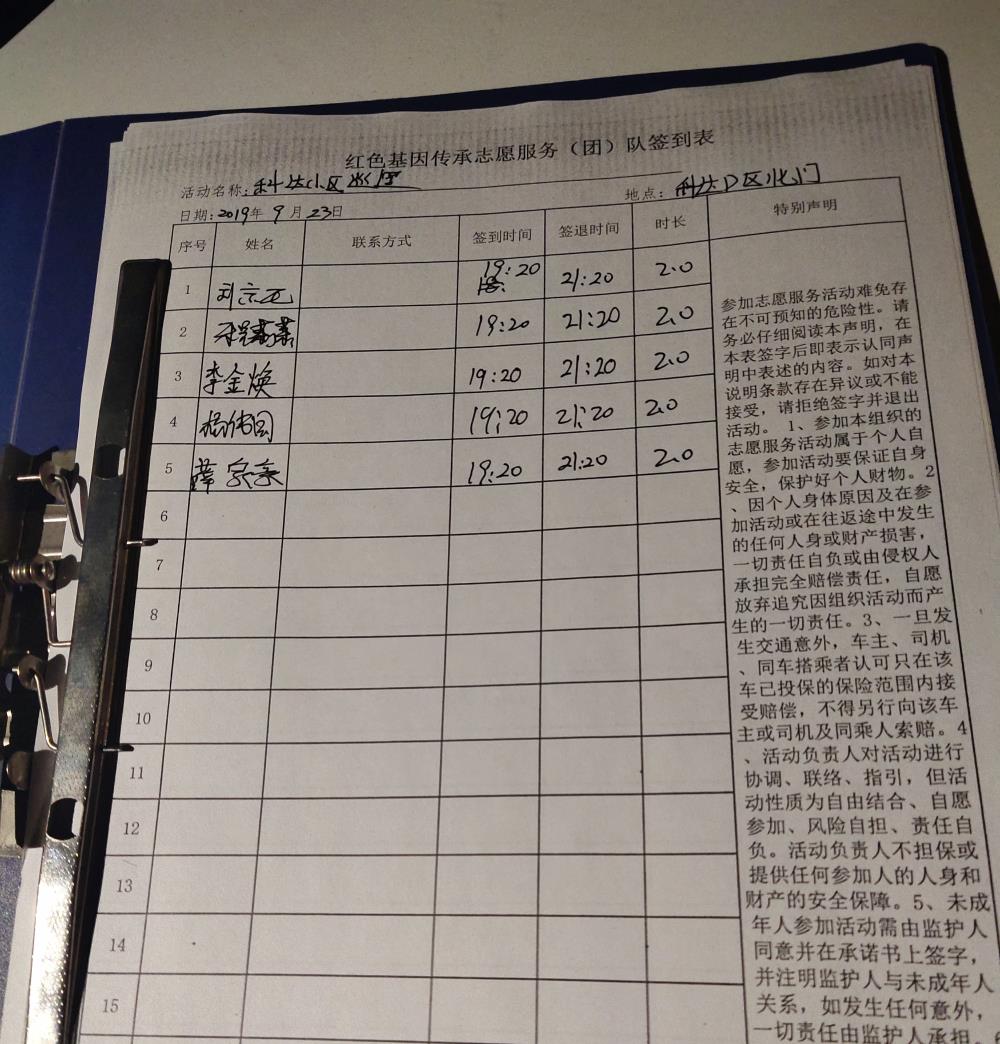 红色基因传承志愿服务（团）队签到表
活动名称：科达小区
地点：科达小区北门
日期：2019年 9月 23日
序号 姓名 联系方式 签到时间 签退时间 时长 特别声明
1 19:20 21:20 2.0
2 19:20 21:20 2.0
3 李金焕 19:20 21:20 2.0
4 杨伟国 19:20 21:20 2.0
5 薛 19:20 21:20 2.0
6
7
8
9
10
11
12
13
14
15
参加志愿服务活动难免存
在不可预知的危险性。请
务必仔细阅读本声明，在
本表签字后即表示认同声
明中表述的内容。如对本
说明条款存在异议或不能
接受，请拒绝签字并退出
活动。 1、参加本组织的
志愿服务活动属于个人自
愿，参加活动要保证自身
安全，保护好个人财物。2
、因个人身体原因及在参
加活动或在往返途中发生
的任何人身或财产损害，
一切责任自负或由侵权人
承担完全赔偿责任，自愿
放弃追究因组织活动而产
生的一切责任。3、一旦发
生交通意外，车主、司机
、同车搭乘者认可只在该
车已投保的保险范围内接
受赔偿，不得另行向该车
主或司机及同乘人索赔。4
、活动负责人对活动进行
协调、联络、指引，但活
动性质为自由结合、自愿
参加、风险自担、责任自
负。活动负责人不担保或
提供任何参加人的人身和
财产的安全保障。5、未成
年人参加活动需由监护人
同意并在承诺书上签字，
并注明监护人与未成年人
关系，如发生任何意外，
一切责任由监护人承担。6